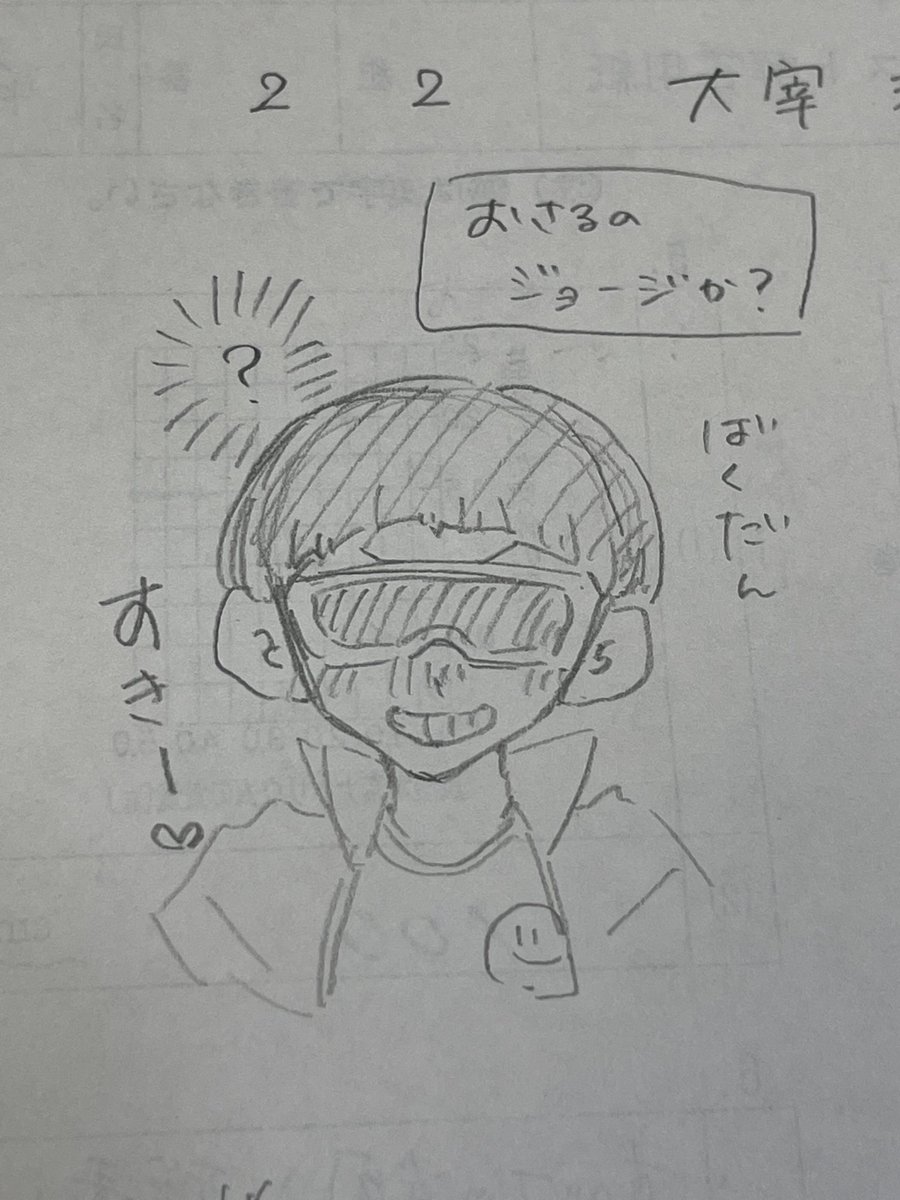 2 2 大宰
おさるの
ジョージか?
?
ばくだん
すきー♡
2 5